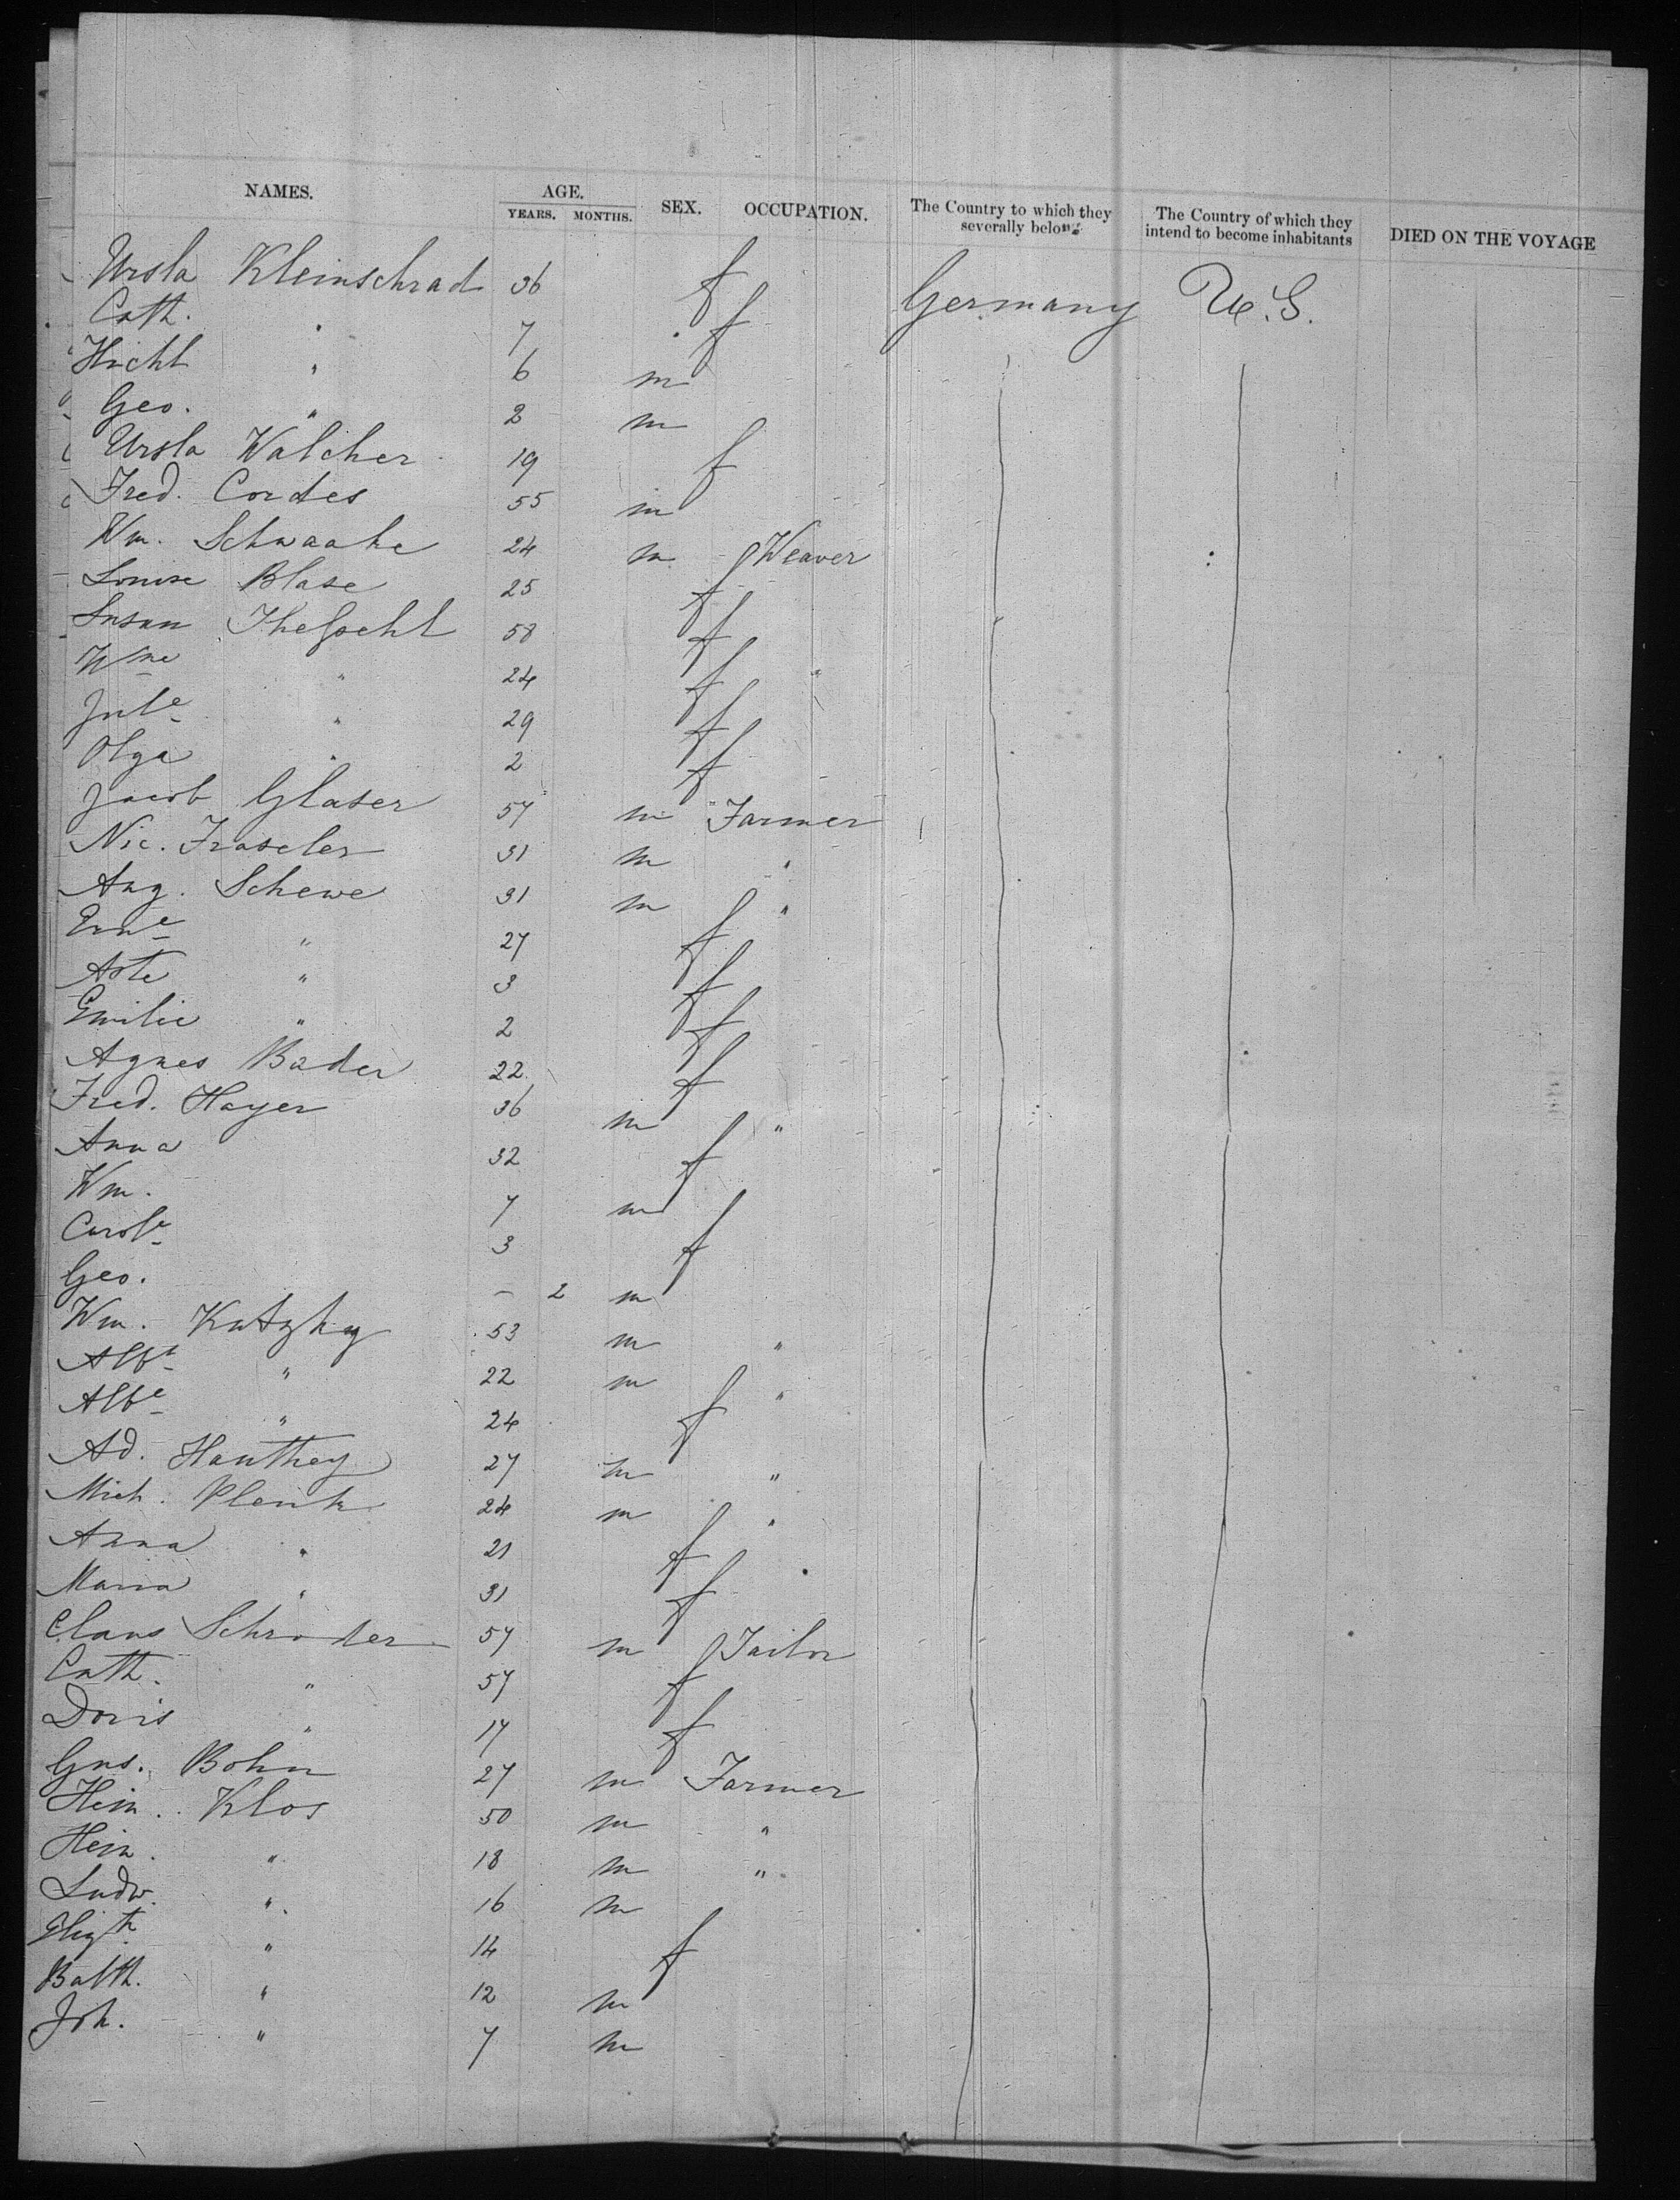 NAMES. AGE. SEX. OCCUPATION. The Country to which they severally belong The Country of which they intend to become inhabitants DIED ON THE VOYAGE
YEARS. MONTHS.
Ursla Kleinschrad 36 f Germany U.S.
Cath. " 7 f
Hicht " 6 m
Geo. " 2 m
Ursla Walcher 19 f
Fred. Cordes 55 m
Wm. Schwaake 24 m Weaver
Louise Blase 25 f
Susan 58 f
Wme " 24 f
Jule " 29 f
Olga " 2 f
Jacob Glaser 57 m Farmer
Nic. Fraseler 31 m "
Aug. Schewe 31 m "
Erne " 27 f
Aste " 3 f
Emilie " 2 f
Agnes Bader 22 f
Fred. Hayer 36 m "
Anna 32 f
Wm. 7 m
Carole 3 f
Geo. – 2 m
Wm. Kutzky 53 m "
Albt " 22 m "
Albe " 24 f
Ad. Hanthey 27 m "
Mich. Plenk 24 m "
Anna " 21 f
Maria " 31 f
Claus Schroder 57 m Tailor
Cath. " 57 f
Doris " 17 f
Gus. Bohn 27 m Farmer
Hein. Klos 50 m "
Hein. " 18 m "
Ludw. " 16 m
Elizth " 14 f
Balth. " 12 m
Joh. " 7 m